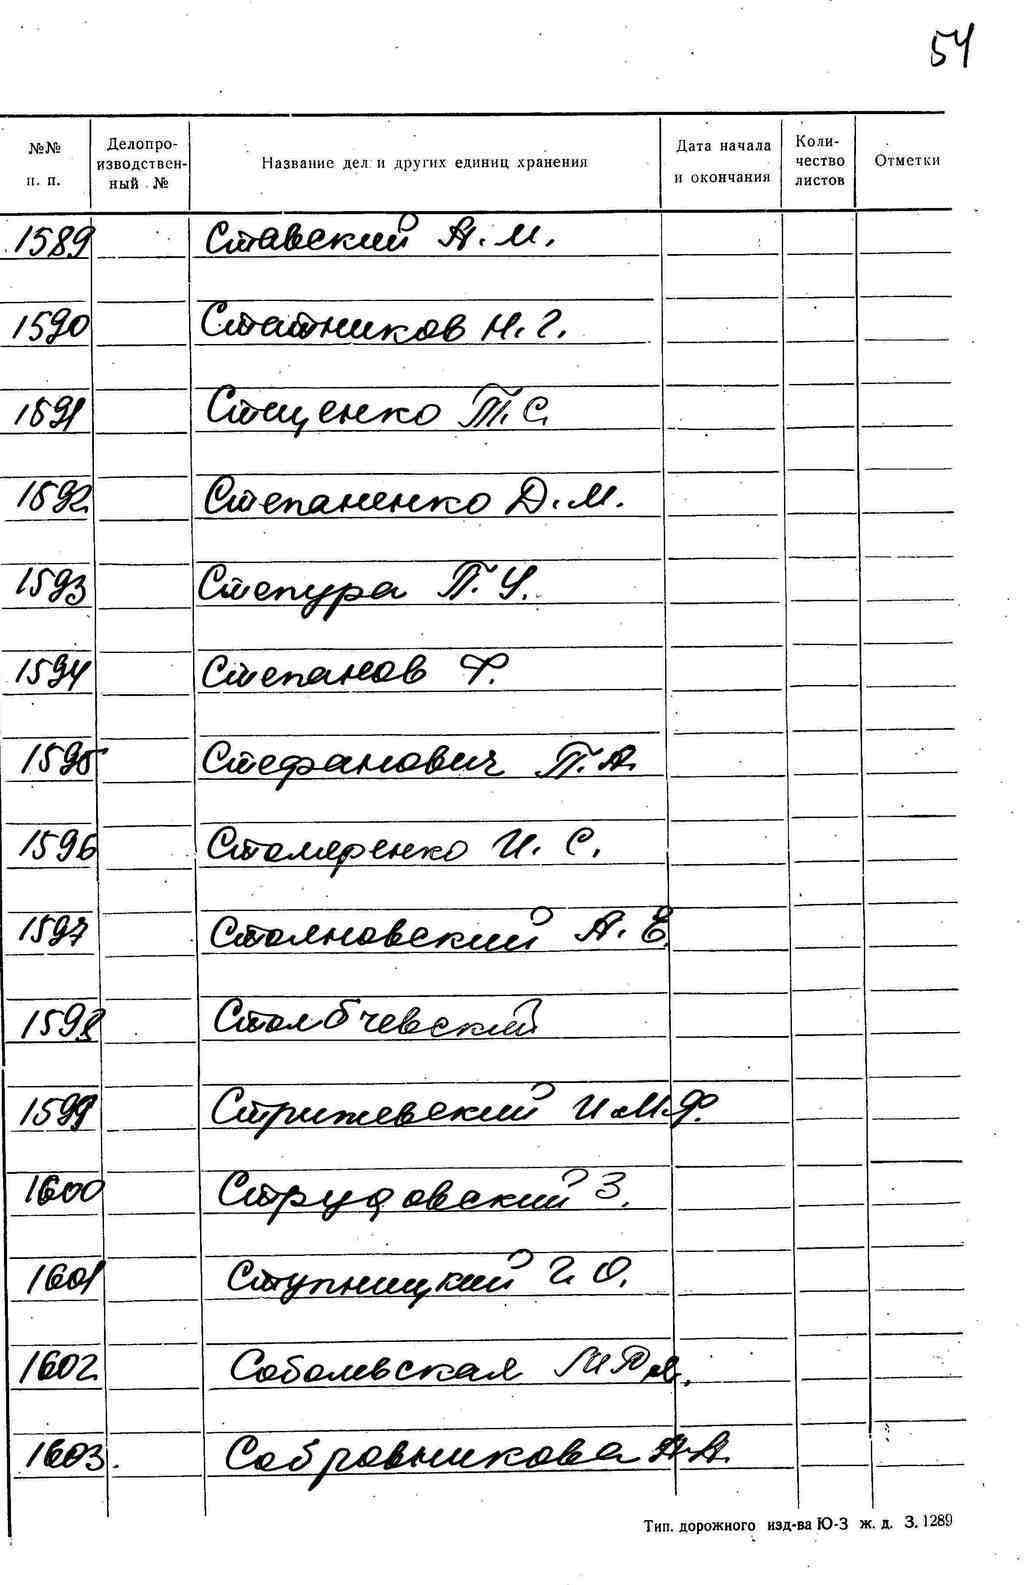 54
№№ п. п. Делопроизводственный № Название дел и других единиц хранения Дата начала и окончания Количество листов Отметки
1589 Ставский А. М.
1590 Статников Н. Г.
1591 Стеценко Т. С.
1592 Степаненко Д. М.
1593 Степура П. У.
1594 Степанов Ф.
1595 Стефанович П. А.
1596 Столяренко И. С.
1597 Столновский А. Е.
1598 Столбчевский
1599 Стрижевский И. М. Ф.
1600 Струдовский З.
1601 Ступницкий Г. О.
1602 Соболевская
1603. Собровникова А. А.
Тип. дорожного изд-ва Ю-З ж. д. З. 1289